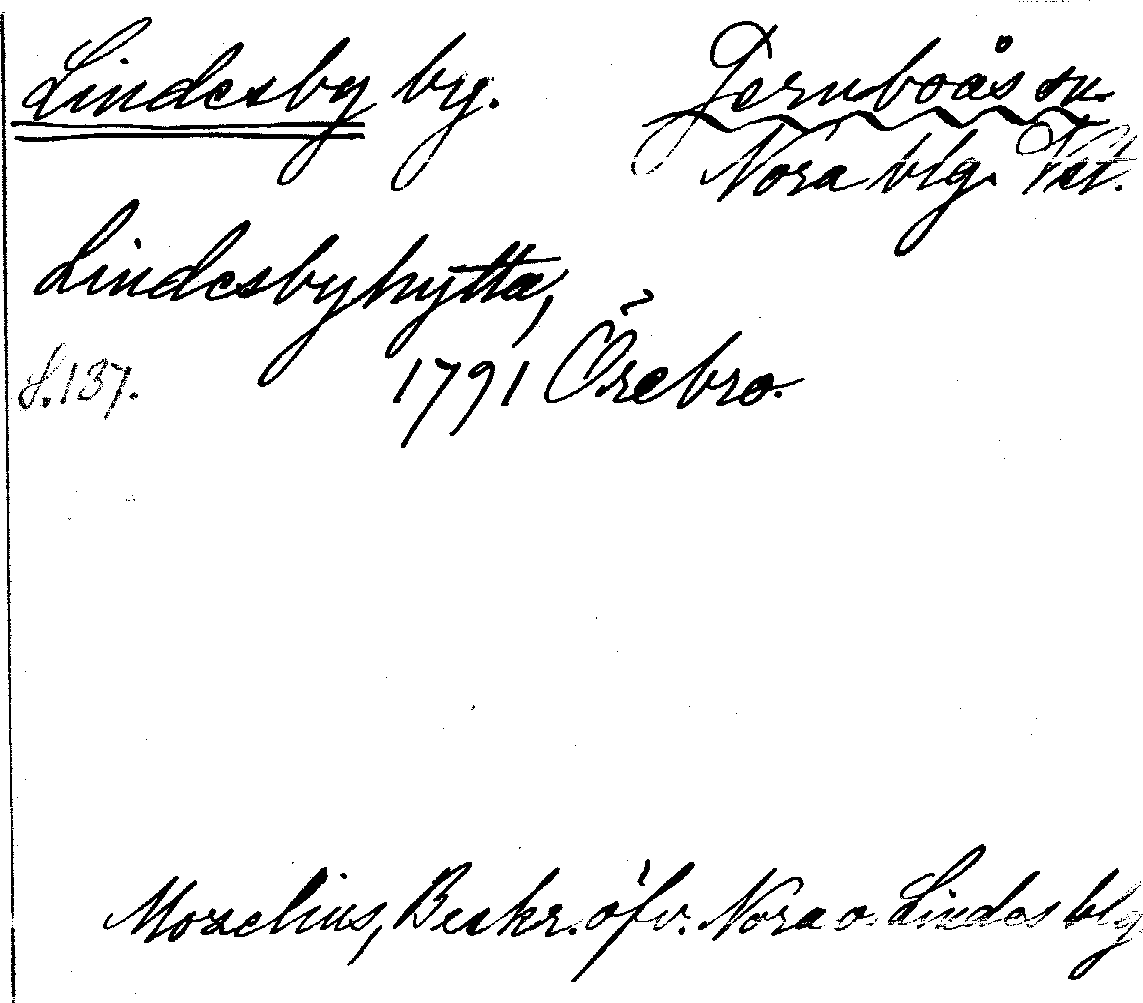 Lindesby by.
Jernboås sn.
Nora blg. Vstl.
Lindesbyhytta,
s. 137. 1791 Örebro.
Morelius, Beskr. öfv. Nora o. Lindes blg.